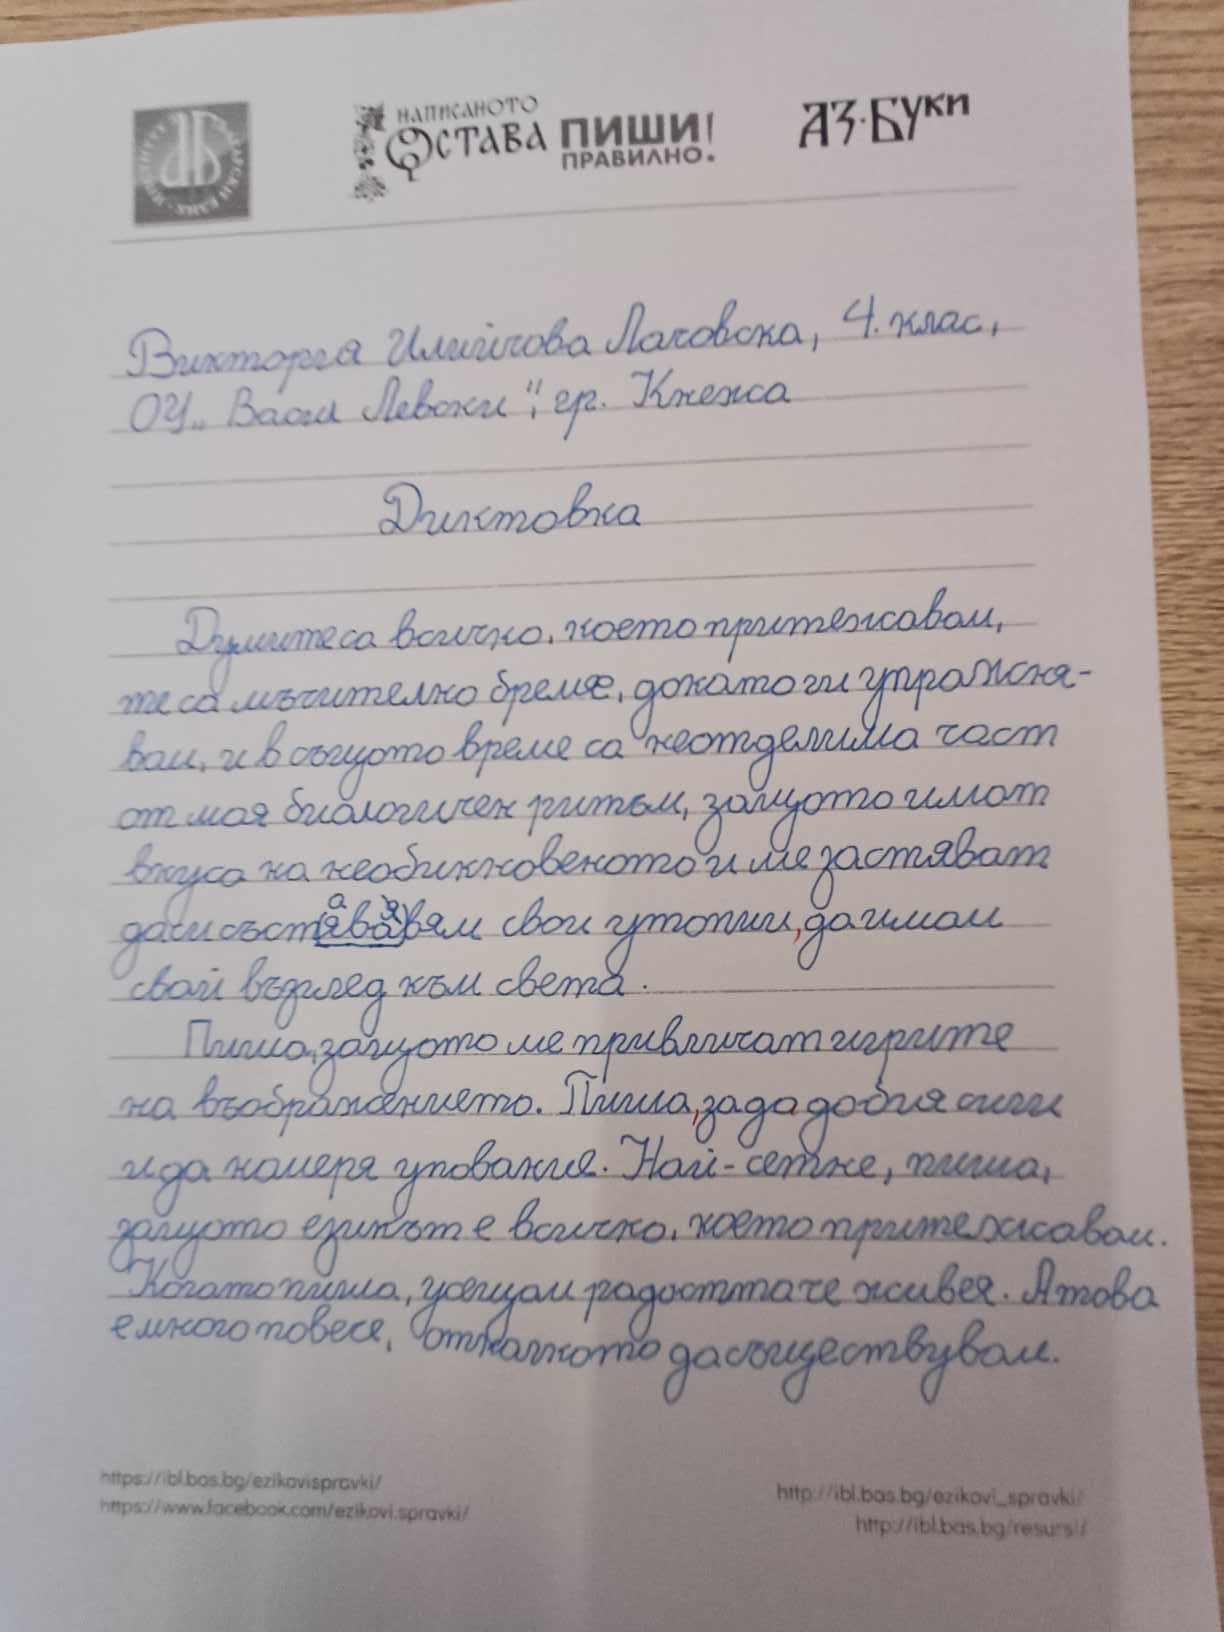 НАПИСАНОТО
ОСТАВА ПИШИ ПРАВИЛНО!
АЗ·БУКИ
Виктория Илийчова Лаковска, 4. клас,
ОУ „Васил Левски", гр. Кнежа
Диктовка
Думите са всичко, което притежавам,
те са мъчително бреме, докато ги упражня-
вам, и в същото време са неотделима част
от моя биологичен ритъм, защото имат
вкуса на необикновеното и ме заставят
да си съставям свои утопии, да имам
свой възглед към света.
Пиша, защото ме привличат игрите
на въображението. Пиша, за да добия сили
и да намеря упование. Най-сетне, пиша,
защото езикът е всичко, което притежавам.
Когато пиша, усещам радостта че живея. А това
е много повече, отколкото да съществувам.
https://ibl.bas.bg/ezikovispravki/
https://www.facebook.com/ezikovi.spravki/
http://ibl.bas.bg/ezikovi_spravki/
http://ibl.bas.bg/resursi/